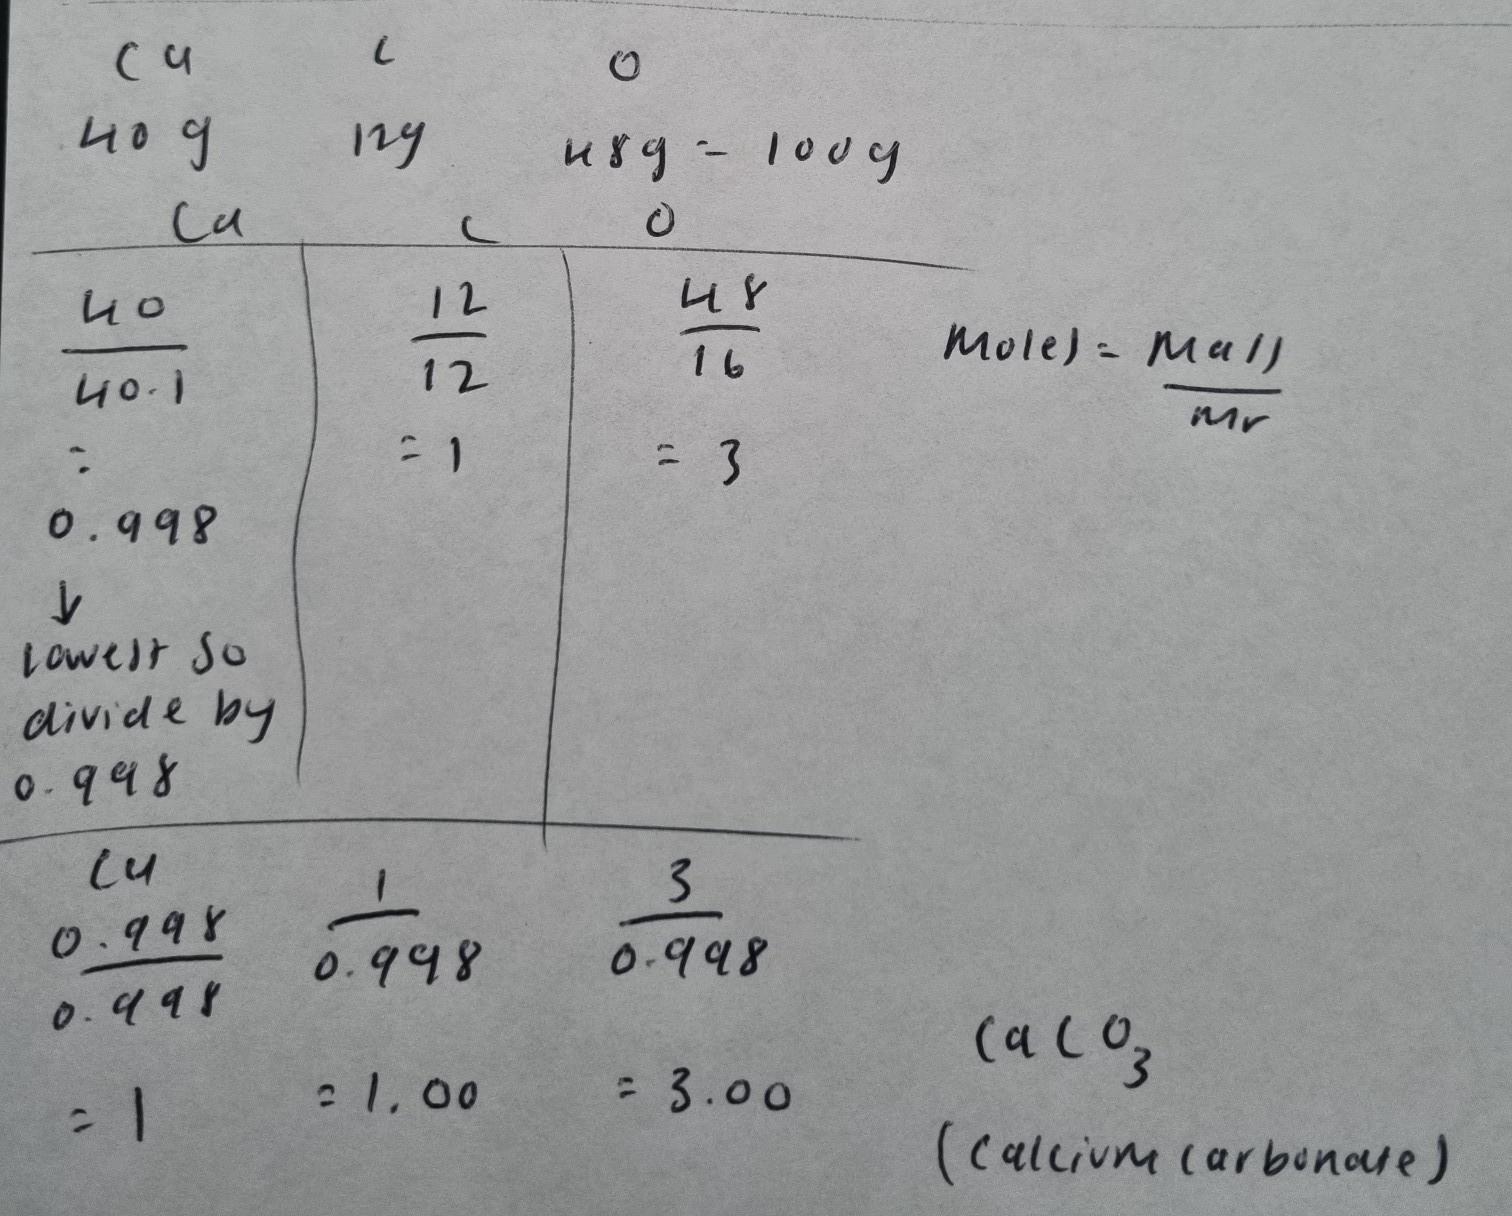 Ca C O
40 g 12g 48g = 100g
Ca C O
40 12 48
40.1 12 16
Moles = Mass
Mr
= = 1 = 3
0.998
↓
lowest so
divide by
0.998
Ca
0.998 1 3
0.998 0.998 0.998
= 1 = 1.00 = 3.00
CaCO₃
(calcium carbonate)